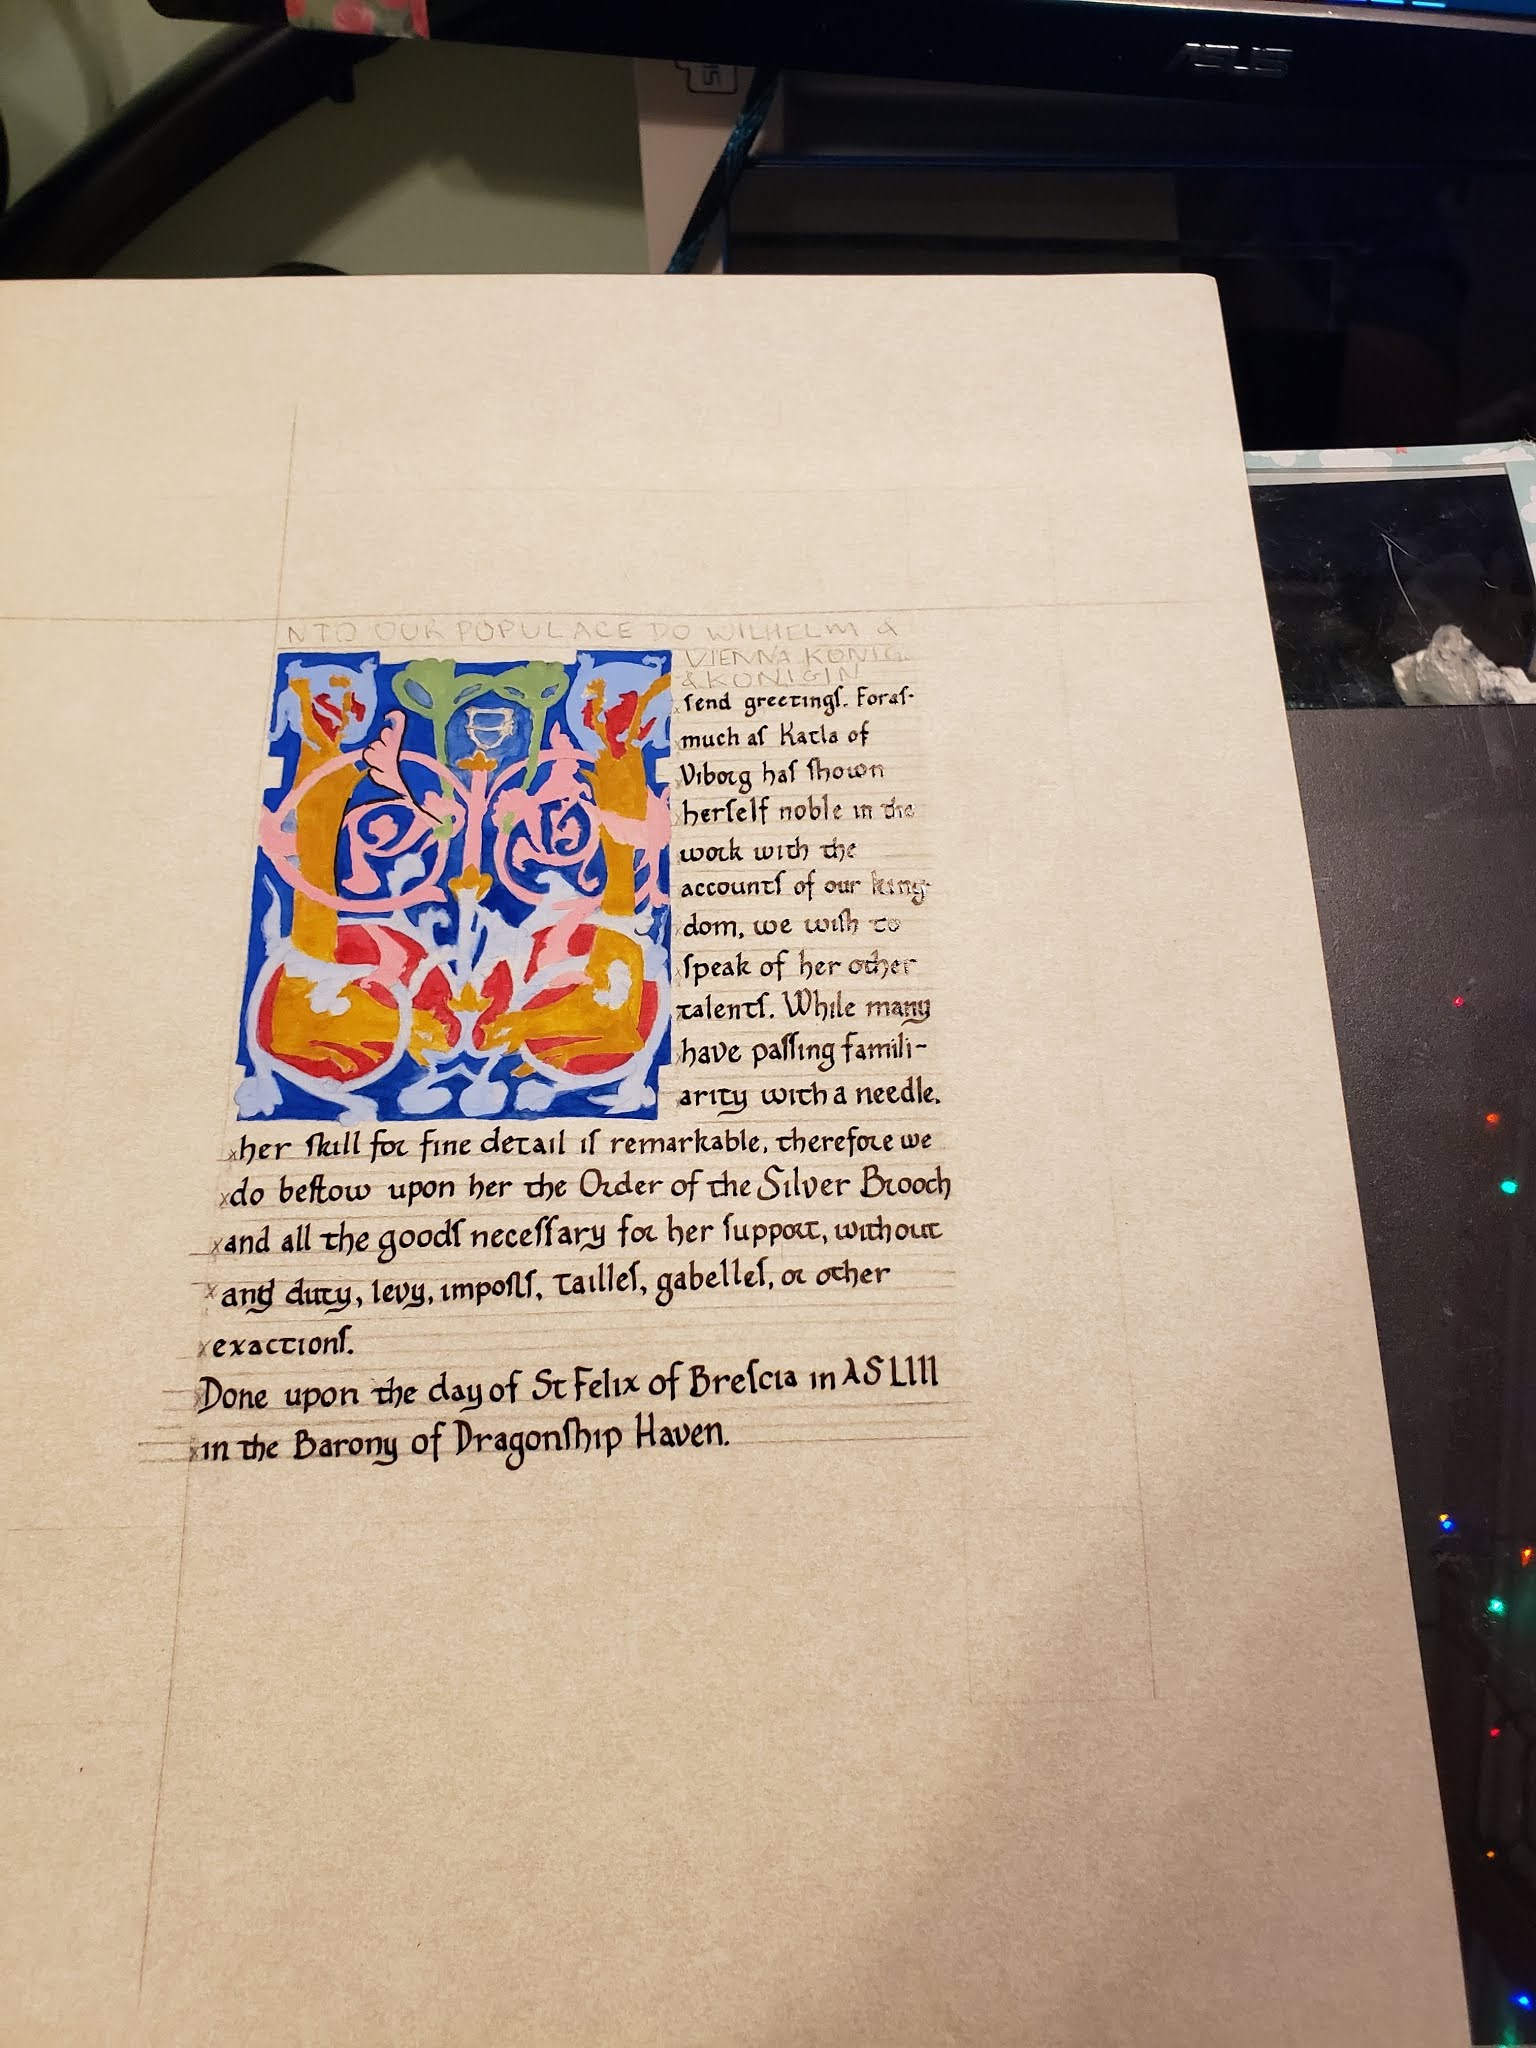 ASUS
NTO OUR POPULACE DO WILHELM &
VIENNA KÖNIG
& KÖNIGIN
ſend greetingſ. Foraſ-
much aſ Katla of
Viborg haſ ſhown
herſelf noble in the
work with the
accountſ of our king-
dom, we wiſh to
ſpeak of her other
talentſ. While many
have paſſing famili-
arity with a needle,
her ſkill for fine detail iſ remarkable, therefore we
do beſtow upon her the Order of the Silver Brooch
and all the goodſ neceſſary for her ſupport, without
any duty, levy, impoſtſ, tailleſ, gabelleſ, or other
exactionſ.
Done upon the day of St Felix of Breſcia in AS LIII
in the Barony of Dragonſhip Haven.